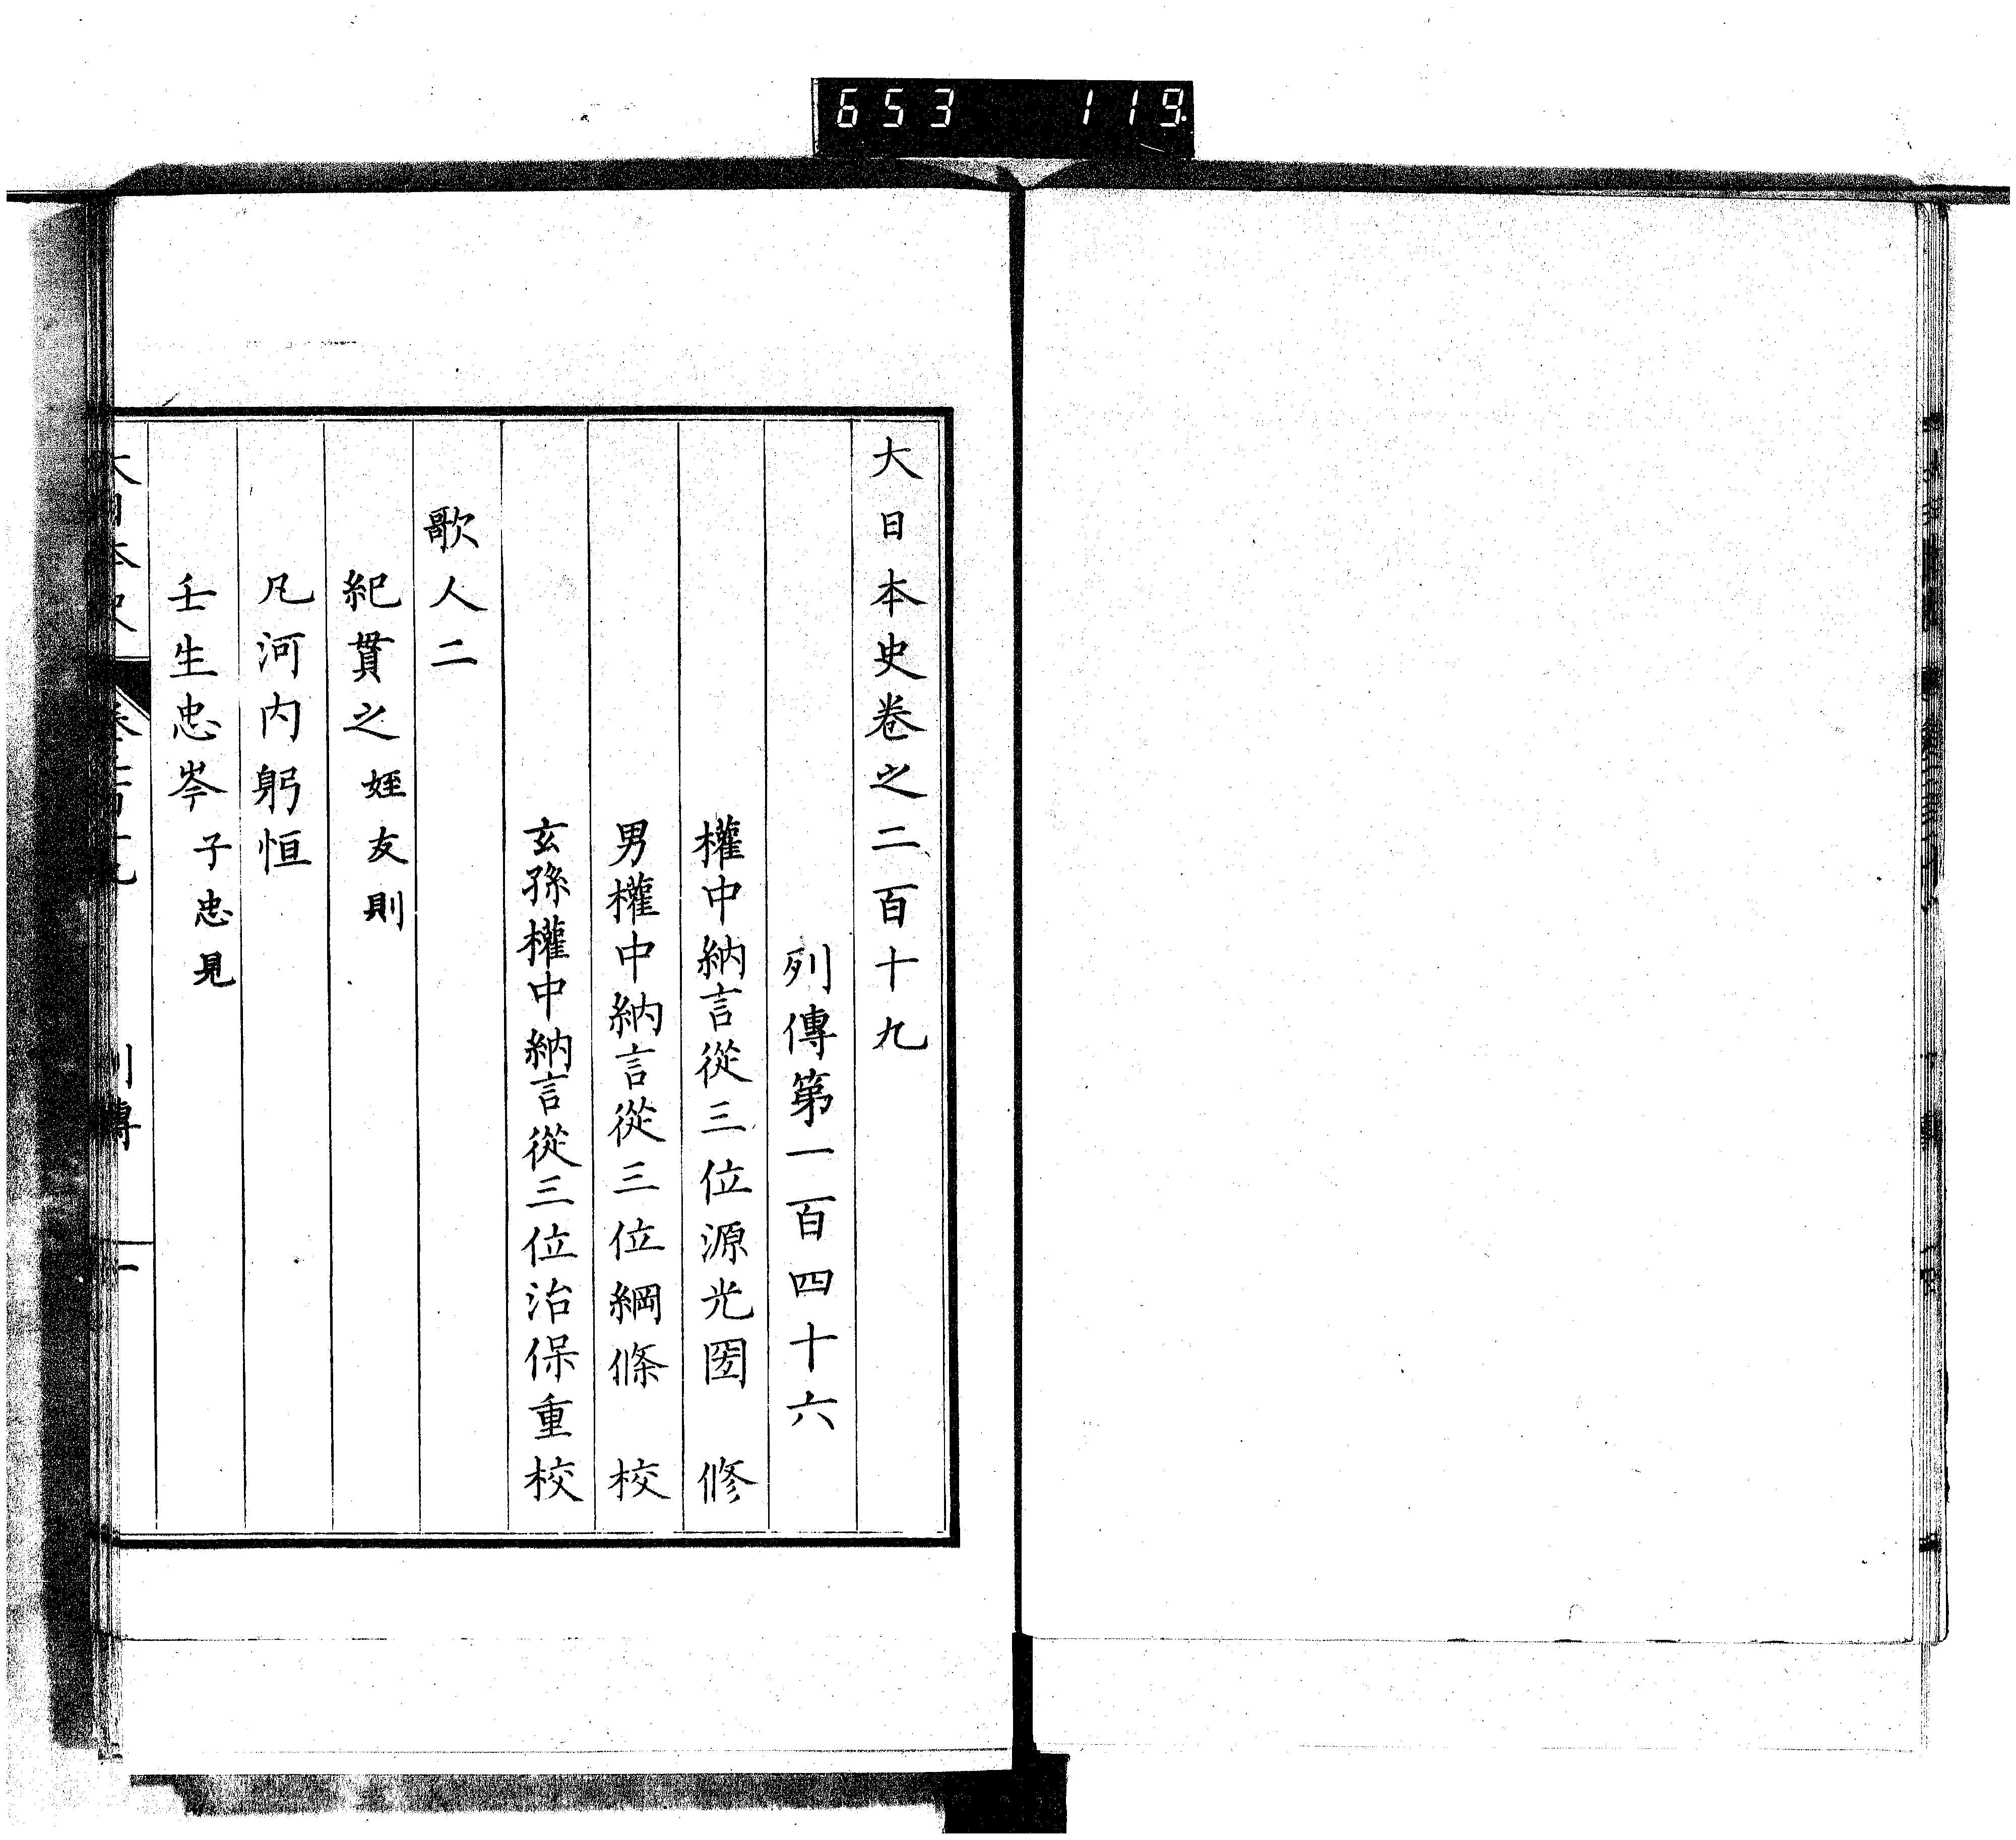 653 119
大日本史卷之二百十九
列傳第一百四十六
權中納言從三位源光圀 修
男權中納言從三位綱條 校
玄孫權中納言從三位治保重校
歌人二
紀貫之 姪友則
凡河内躬恒
壬生忠岑 子忠見